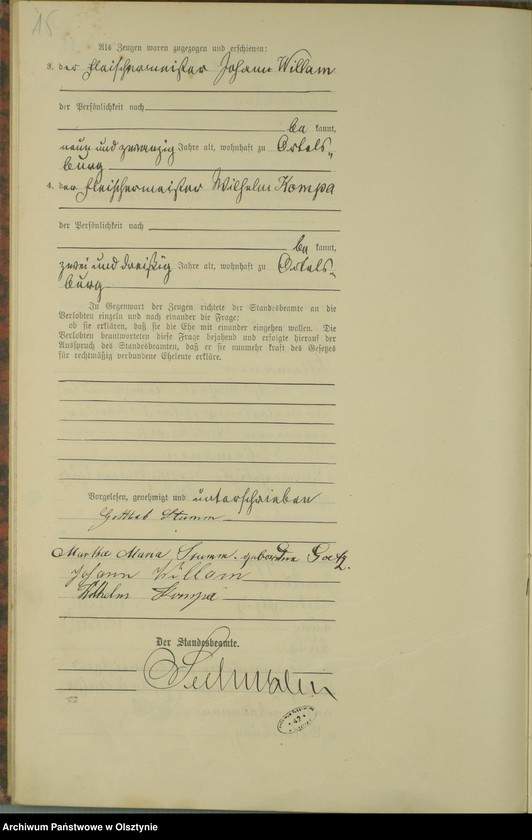 15
Als Zeugen waren zugezogen und erschienen:
3. der Fleischermeister Johann Willam
der Persönlichkeit nach
be kannt,
neun und zwanzig Jahre alt, wohnhaft zu Ortels-
burg
4. der Fleischermeister Wilhelm Kompa
der Persönlichkeit nach
be kannt,
zwei und dreißig Jahre alt, wohnhaft zu Ortels-
burg
In Gegenwart der Zeugen richtete der Standesbeamte an die
Verlobten einzeln und nach einander die Frage:
ob sie erklären, daß sie die Ehe mit einander eingehen wollen. Die
Verlobten beantworteten diese Frage bejahend und erfolgte hierauf der
Ausspruch des Standesbeamten, daß er sie nunmehr kraft des Gesetzes
für rechtmäßig verbundene Eheleute erkläre.
Vorgelesen, genehmigt und unterschrieben
Gottlieb Stumm
Martha Maria Stumm geborene
Johann Willam
Wilhelm Kompa
Der Standesbeamte.
Archiwum Państwowe w Olsztynie